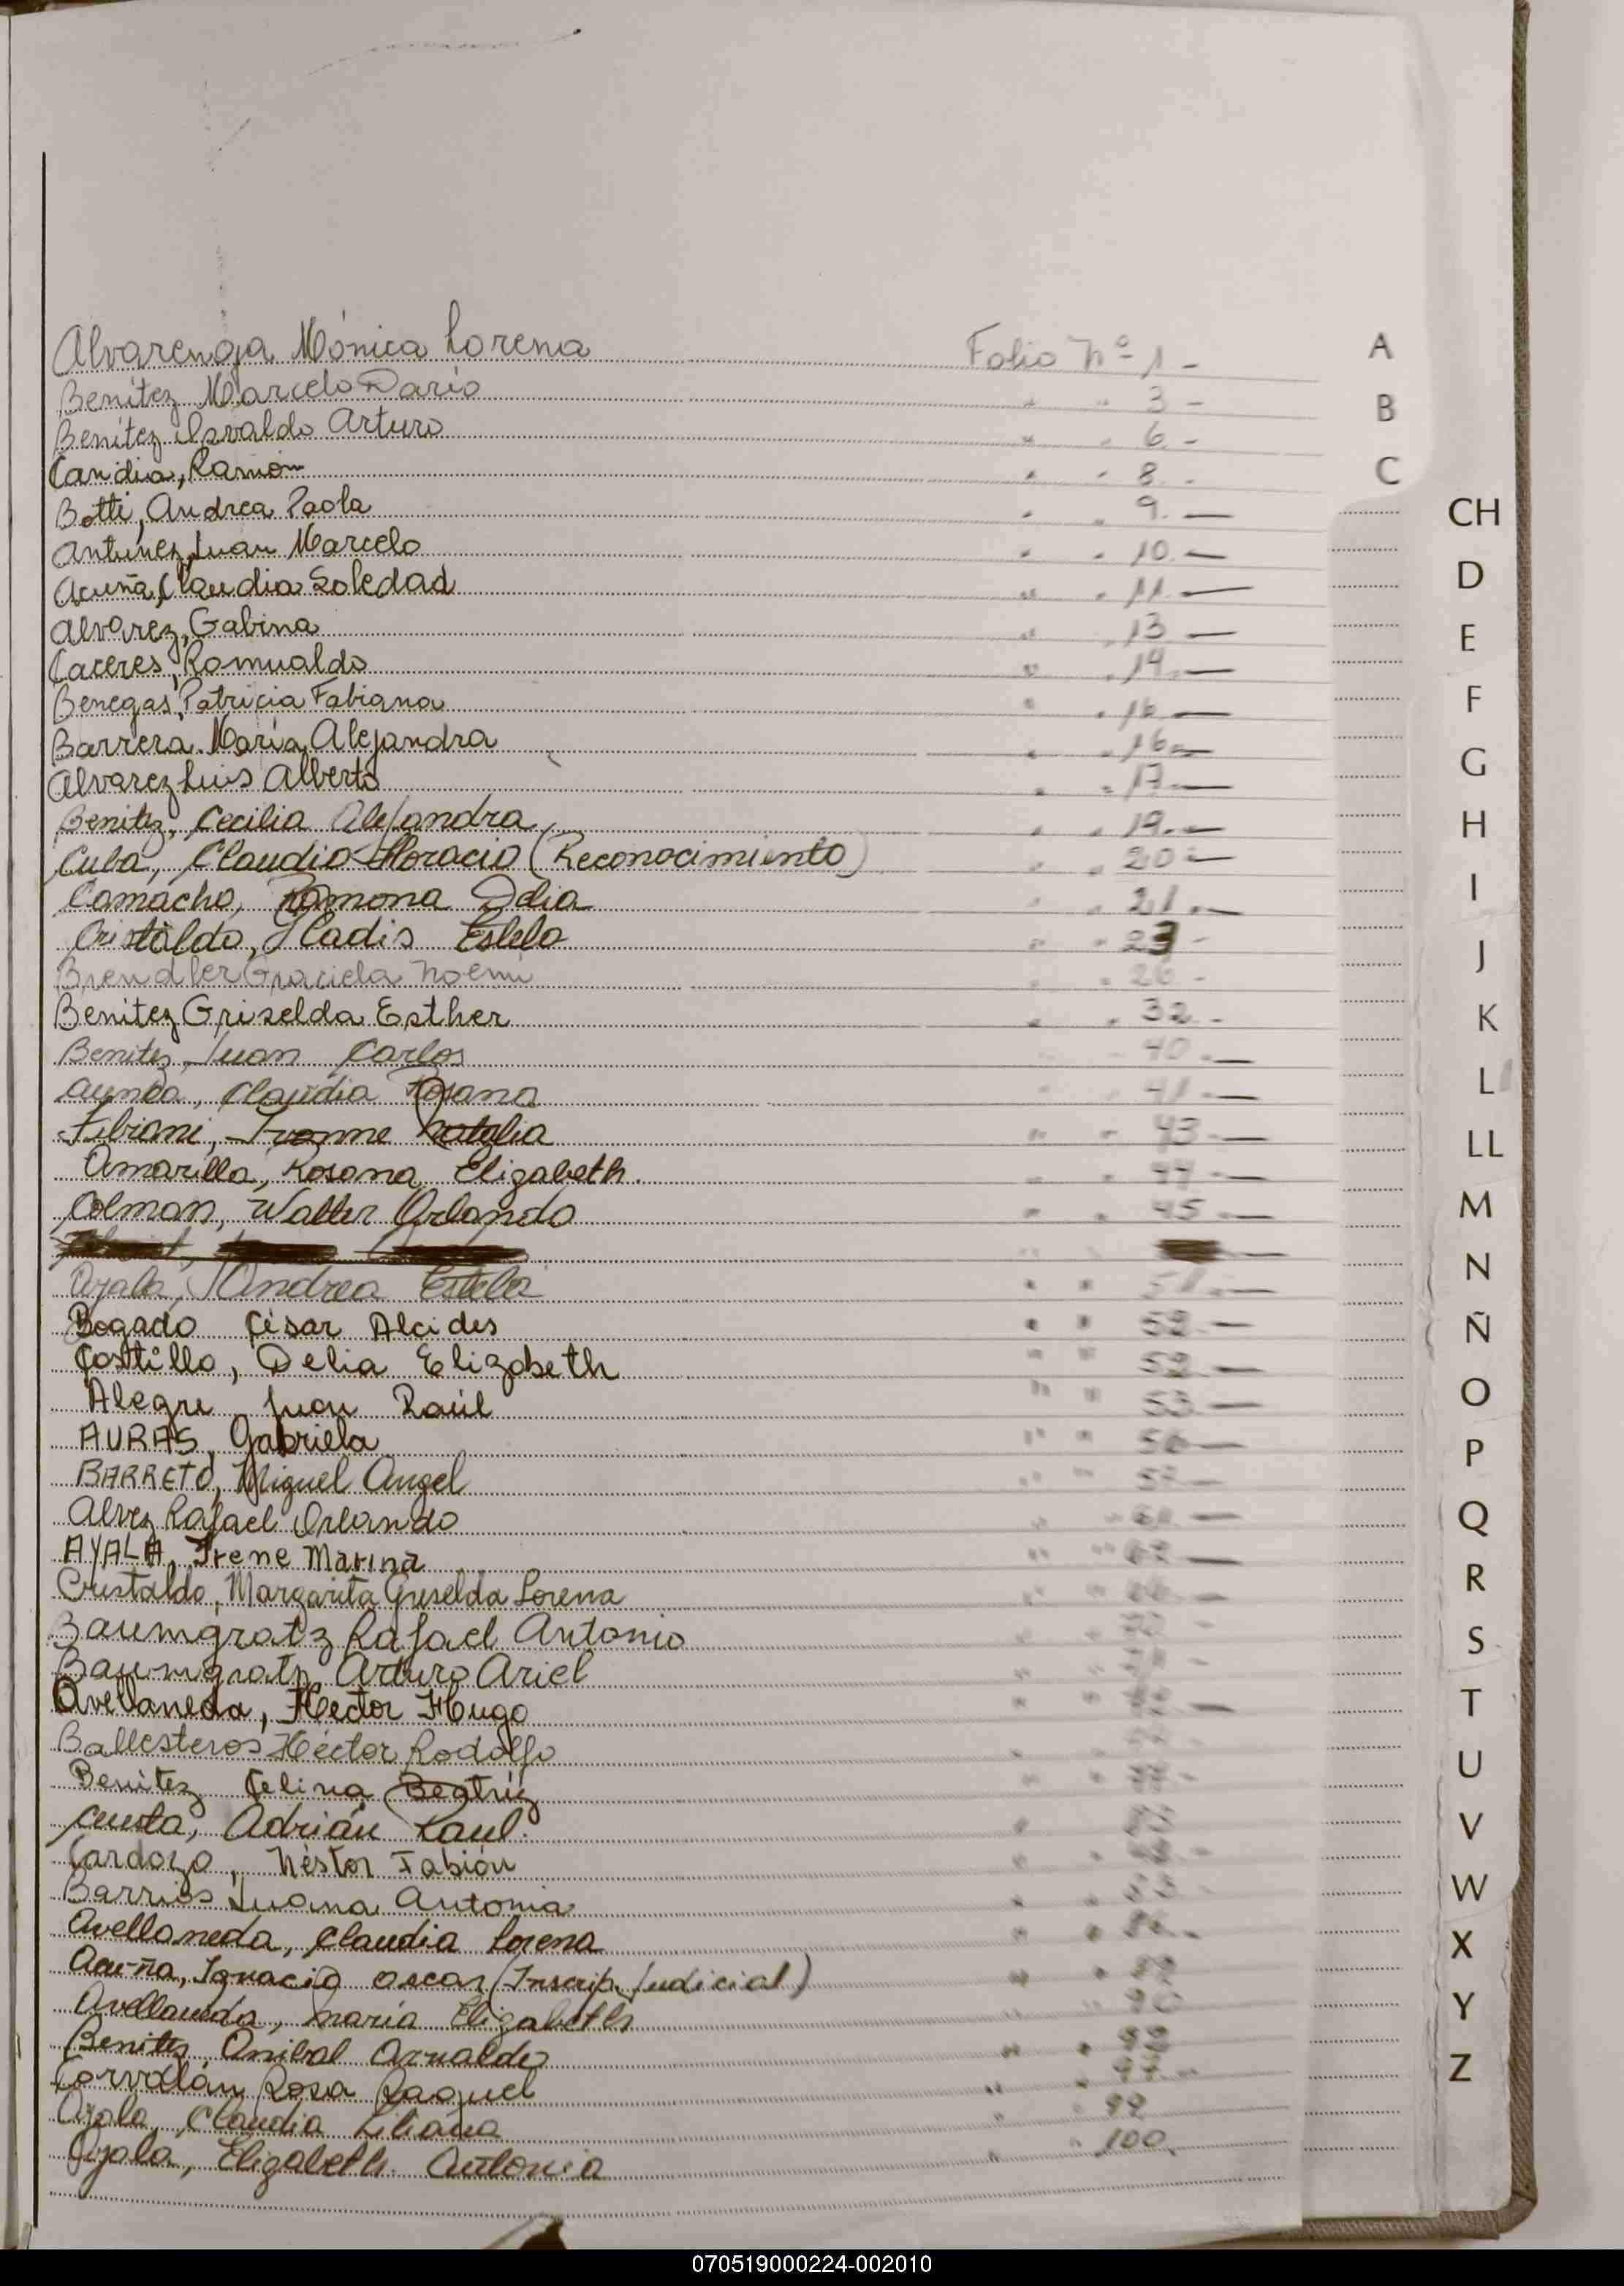 Alvarenga Mónica Lorena Folio Nº 1 -
Benítez Marcelo Darío " " 3 -
Benítez Osvaldo Arturo " " 6 -
Candia, Ramón " " 8 -
Botti, Andrea Paola " " 9. —
Antunez, Juan Marcelo " " 10. —
Acuña, Claudia Soledad " " 11. —
Alvarez, Gabina " " 13 —
Caceres, Romualdo " " 14. —
Benegas, Patricia Fabiana " " 16 —
Barrera María Alejandra " " 16 —
Alvarez Luis Alberto " " 17 —
Benitez, Cecilia Alejandra " " 19. —
Cuba, Claudio Horacio (Reconocimiento) " " 20 —
Camacho, Ramona Odia " " 21. —
Cristaldo, Gladis Estela " " 23 -
Brendler Graciela Noemí " " 26 -
Benítez Griselda Esther " " 32 -
Benitez, Juan Carlos " " 40. —
Claudia Rosana " " 41. —
Ivonne Natalia " " 43. —
Amarilla, Rosana Elizabeth. " " 44. —
Colman, Walter Orlando " " 45. —
Ayala, Andrea Estela " " 51. —
Bogado César Alcides " " 52. —
Castillo, Delia Elizabeth " " 52. —
Alegre Juan Raúl " " 53. —
AURAS, Gabriela " " 56 —
BARRETO, Miguel Angel " " 57 —
Alvez Rafael Orlando " " 61 —
AYALA, Irene Marina " " 62 —
Cristaldo, Margarita Griselda Lorena " "
Baumgratz Rafael Antonio " "
Baumgratz Arturo Ariel " "
Avellaneda, Hector Hugo " "
Ballesteros Héctor Rodolfo " "
Benitez Celina Beatríz " "
Adrián Raul. "
Cardozo, Néstor Fabián " "
Barrios Juana Antonia " "
Avellaneda, Claudia Lorena " "
Acuña, Ignacio Oscar (Inscrip. Judicial) " "
Avellaneda, María Elizabeth " " 90
Benitez Anibal Arnaldo " "
Corvalán Rosa Raquel " " 97. -
Ayala, Claudia Liliana " " 99
Ayala, Elizabeth. Antonia " " 100.
A
B
C
CH
D
E
F
G
H
I
J
K
L
LL
M
N
Ñ
O
P
Q
R
S
T
U
V
W
X
Y
Z
070519000224-002010